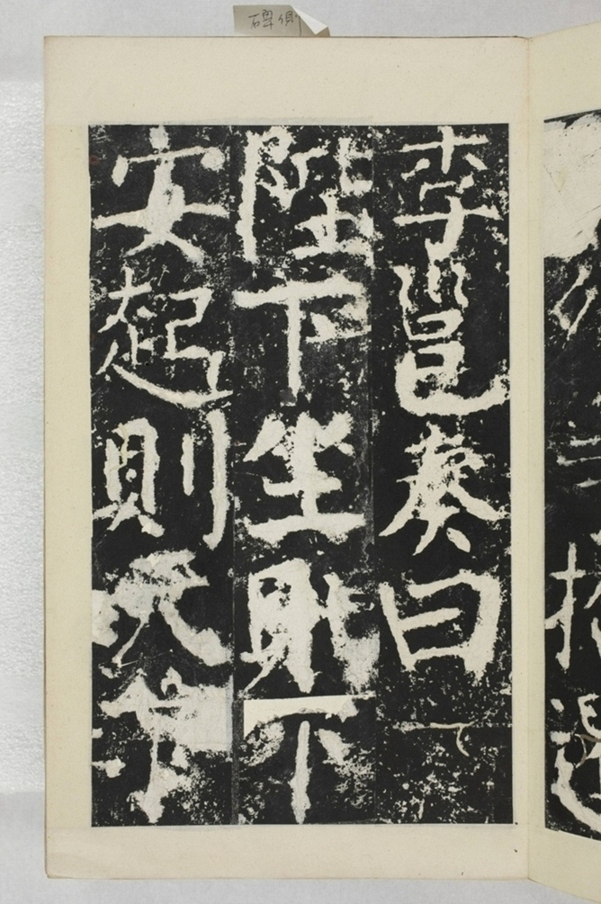 碑側
李邕奏曰
陛下坐則下
安起則